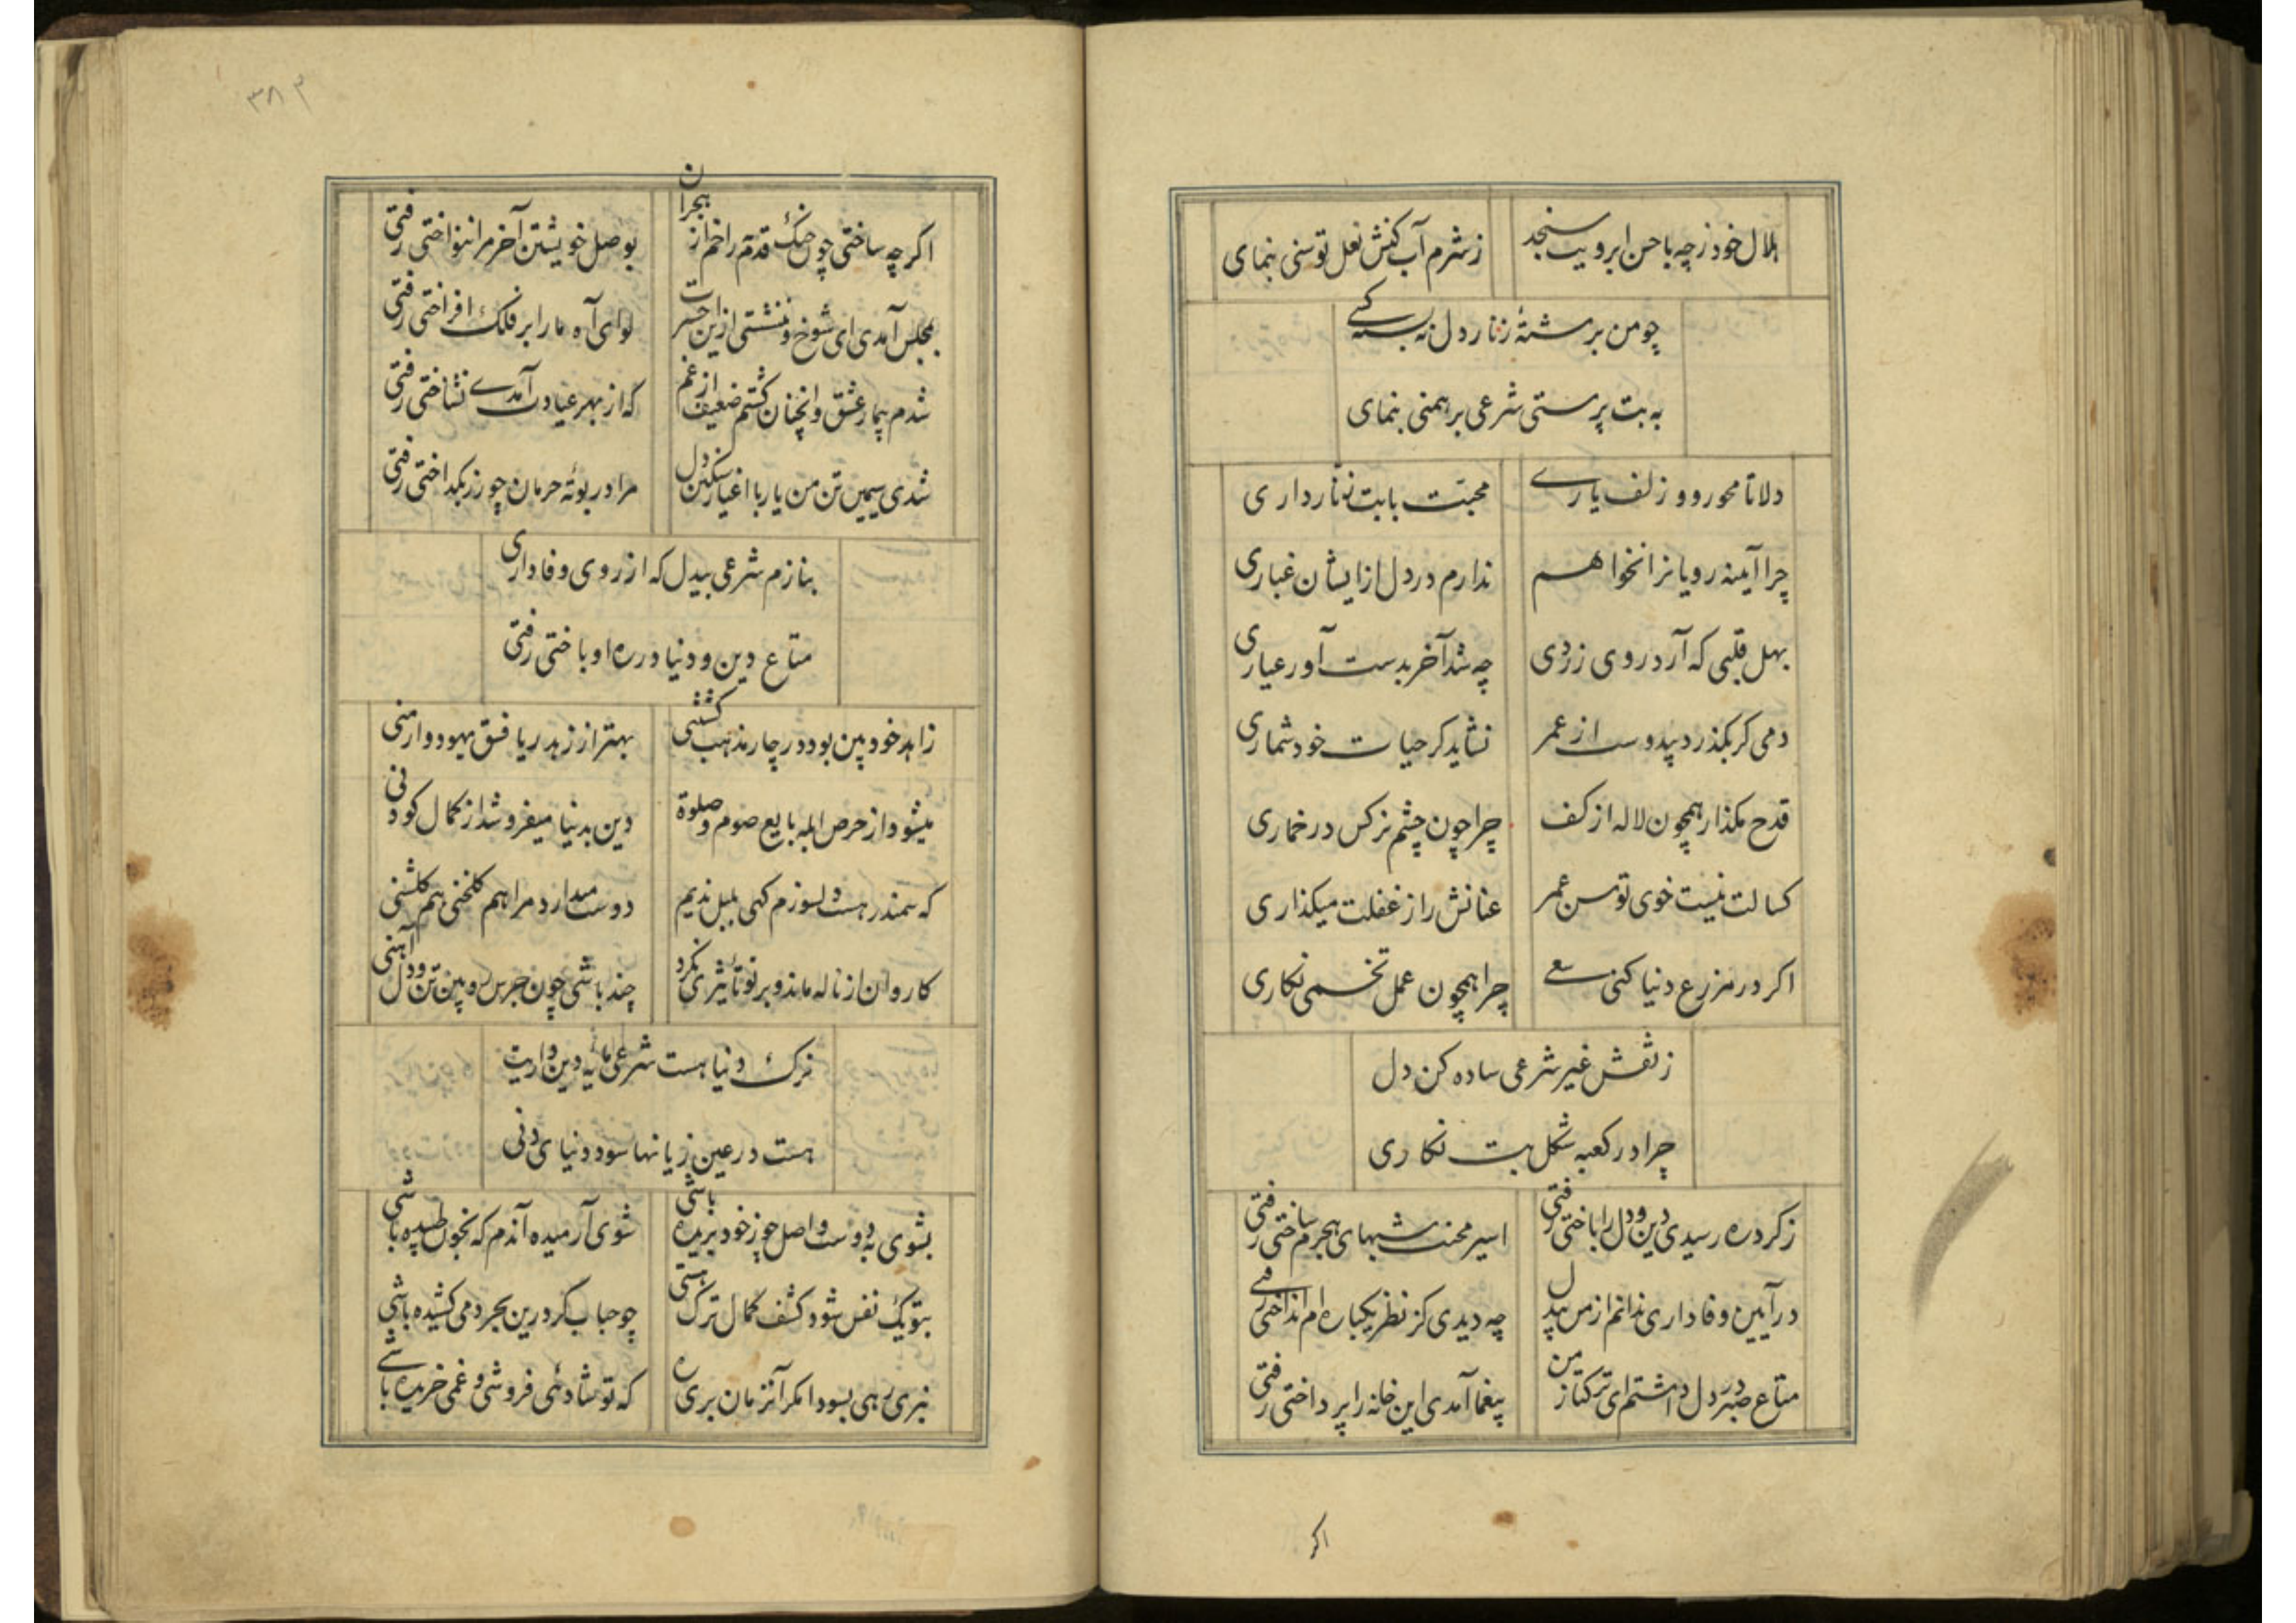 هلال خود ز چه با حسن ابرویت سنجد
ز شرم آب کنش نعل توسنی بنمای
چو من برشتهٔ زنار دل نه بسته کسے
به بت پرستی شرعی برهمنی بنمای
دلا تا محو رو و زلف یارے
محبت بابت تاتار داری
چرا آیینه رویانرا نخواهم
ندارم در دل از ایشان غباری
بهل قلبی که آرد روی زردی
چه شد آخر بدست آور عیاری
دمی کز بگذرد بیدوست از عمر
نشاید کز حیات خود شماری
قدح مگذار همچون لاله از کف
چرا چون چشم نرگس در خماری
کسالت نیست خوی توسن عمر
عنانش را ز غفلت میگذاری
اگر در مزرع دنیا کنی سعے
چرا همچون عمل تخمی نکاری
ز نقش غیر شرعی ساده کن دل
چرا در کعبه شکل بت نگاری
ز گرد ره رسیدی دین و دل را باختی رفتی
اسیر محنت شبهای هجرم ساختی رفتی
در آیین وفاداری ندانم از من بیدل
چه دیدی کز نظر یکباره ام انداختی رفتے
متاع صبر در دل داشتم ای ترکتاز من
بیغما آمدی این خانه را پرداختی رفتی
اگر
۳۸۳
اگر چه ساختی چون چنگ قدم را خم از هجران
بوصل خویشتن آخر مرا ننواختی رفتی
بمجلس آمدی ای شوخ و ننشستی ازین حسرت
لوای آه ما را بر فلک افراختی رفتی
شدم بیمار عشق و آنچنان گشتم ضعیف از غم
که از بهر عیادت آمدے نشناختی رفتی
شدی سیمین تن من یار با اغیار سنگین دل
مرا در بوتهٔ حرمان چو زر بگداختی رفتی
بنازم شرعی بیدل که از روی وفاداری
متاع دین و دنیا در ره او باختی رفتی
زاهد خودبین بود در چار مذهب کشتنی
بهتر از زهد ریا فسق یهود و ارمنی
میشود از حرص ابله بایع صوم و صلوة
دین بدنیا میفروشد از کمال کودنی
که سمندر هست دلسوزم کهی بلبل ندیم
دوست میدارد مرا هم گلخنی هم گلشنی
کاروان از ناله ماند و بر تو تأثیری نکرد
چند باشی چون جرس رویین تن و دل آهنی
ترک دنیا هست شرعی مایهٔ دین داریت
هست در عین زیانها سود دنیای دنی
بشوی به دوست واصل چو ز خود بریده باشی
شوی آرمیده آندم که بخون طپیده باشی
بتو یک نفس شود کشف کمال ترک هستی
چو حباب گر درین بحر دمی کشیده باشی
نبری رهی بسودا مگر آنزمان بری ره
که تو شادئی فروشی و غمی خریده باشے